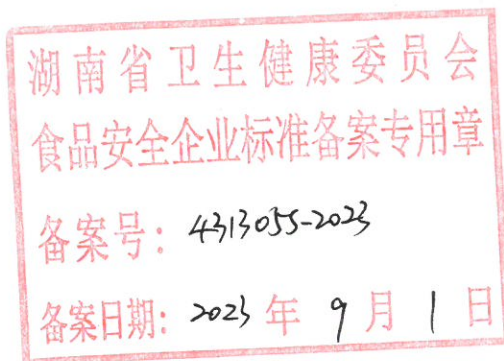 湖南省卫生健康委员会
食品安全企业标准备案专用章
备案号：4313055-2023
备案日期：2023 年 9 月 1 日